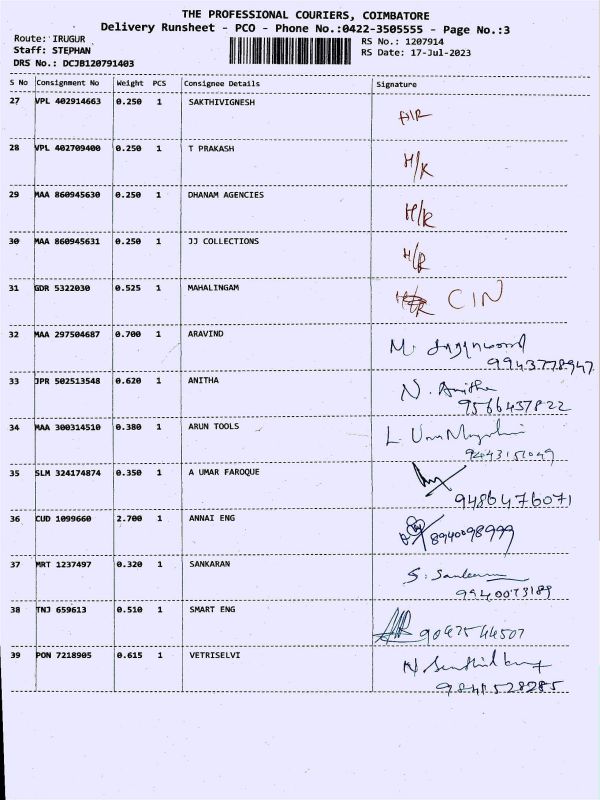 THE PROFESSIONAL COURIERS, COIMBATORE
Delivery Runsheet - PCO - Phone No.:0422-3505555 - Page No.:3
Route: IRUGUR
Staff: STEPHAN
DRS No.: DCJB120791403
RS No.: 1207914
RS Date: 17-Jul-2023
S No Consignment No Weight PCS Consignee Details Signature
27 VPL 402914663 0.250 1 SAKTHIVIGNESH
28 VPL 402709400 0.250 1 T PRAKASH H/K
29 MAA 860945630 0.250 1 DHANAM AGENCIES H/R
30 MAA 860945631 0.250 1 JJ COLLECTIONS H/R
31 GDR 5322030 0.525 1 MAHALINGAM CIN
32 MAA 297504687 0.700 1 ARAVIND M.
9943778947
33 JPR 502513548 0.620 1 ANITHA N. Anitha
9566437822
34 MAA 300314510 0.380 1 ARUN TOOLS L.
9443151049
35 SLM 324174874 0.350 1 A UMAR FAROQUE
9486476071
36 CUD 1099660 2.700 1 ANNAI ENG 8940098999
37 MRT 1237497 0.320 1 SANKARAN S. Sankaran
9940073189
38 TNJ 659613 0.510 1 SMART ENG
39 PON 7218905 0.615 1 VETRISELVI N